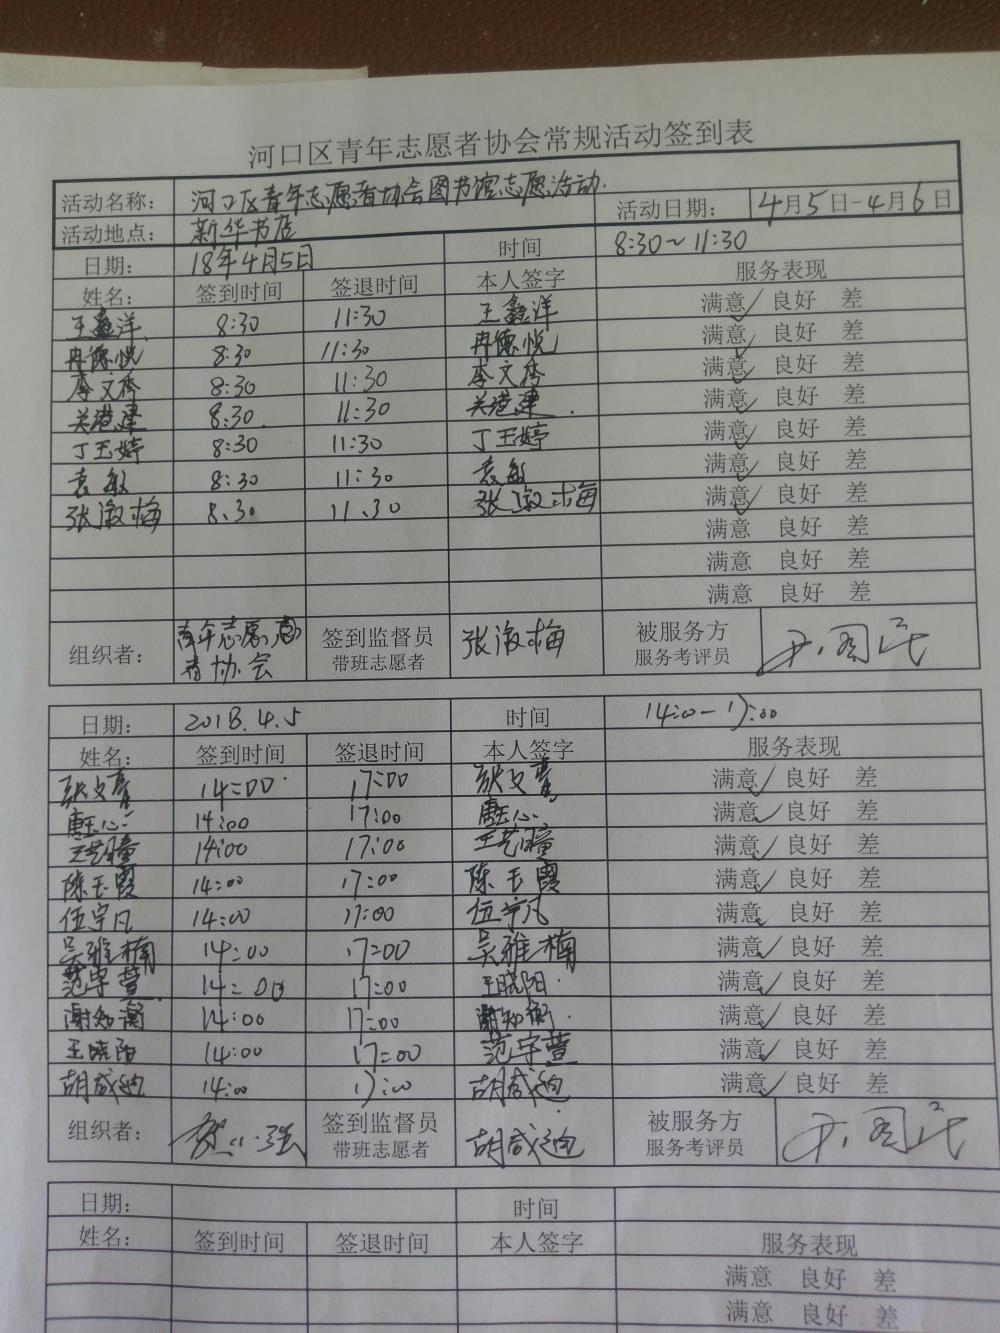 河口区青年志愿者协会常规活动签到表
活动名称： 河口区青年志愿者协会图书馆志愿活动. 活动日期： 4月5日-4月6日
活动地点： 新华书店
日期： 18年4月5日 时间 8:30~11:30
姓名： 签到时间 签退时间 本人签字 服务表现
王鑫洋 8:30 11:30 王鑫洋 满意✓ 良好 差
冉德悦 8:30 11:30 冉德悦 满意✓ 良好 差
李文秀 8:30 11:30 李文秀 满意✓ 良好 差
关港建 8:30. 11:30 关港建. 满意✓ 良好 差
丁玉婷 8:30 11:30 丁玉婷 满意✓ 良好 差
袁敏 8:30 11:30 袁敏 满意✓ 良好 差
张淑梅 8.30 11.30 张淑梅 满意✓ 良好 差
满意 良好 差
满意 良好 差
满意 良好 差
组织者： 青年志愿者协会 签到监督员 带班志愿者 张淑梅 被服务方 服务考评员
日期： 2018.4.5 时间 14:0-17:00
姓名： 签到时间 签退时间 本人签字 服务表现
张文 14:00 17:00 张文 满意✓ 良好 差
14:00 17:00 满意✓ 良好 差
王艺瞳 14:00 17:00 王艺瞳 满意✓ 良好 差
陈玉霞 14:00 17:00 陈玉霞 满意✓ 良好 差
伍宇凡 14:00 17:00 伍宇凡 满意✓ 良好 差
吴雅楠 14:00 17:00 吴雅楠 满意✓ 良好 差
范宇萱 14:00 17:00 王晓阳. 满意✓ 良好 差
谢知衡 14:00 17:00 谢知衡. 满意✓ 良好 差
王晓阳 14:00 17:00 范宇萱 满意✓ 良好 差
胡咸迪 14:00 17:00 胡咸迪 满意✓ 良好 差
组织者： 签到监督员 带班志愿者 胡咸迪 被服务方 服务考评员
日期： 时间
姓名： 签到时间 签退时间 本人签字 服务表现
满意 良好 差
满意 良好 差